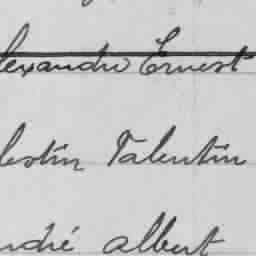 lexandre Ernest
lestin Valentin
ndré Albert